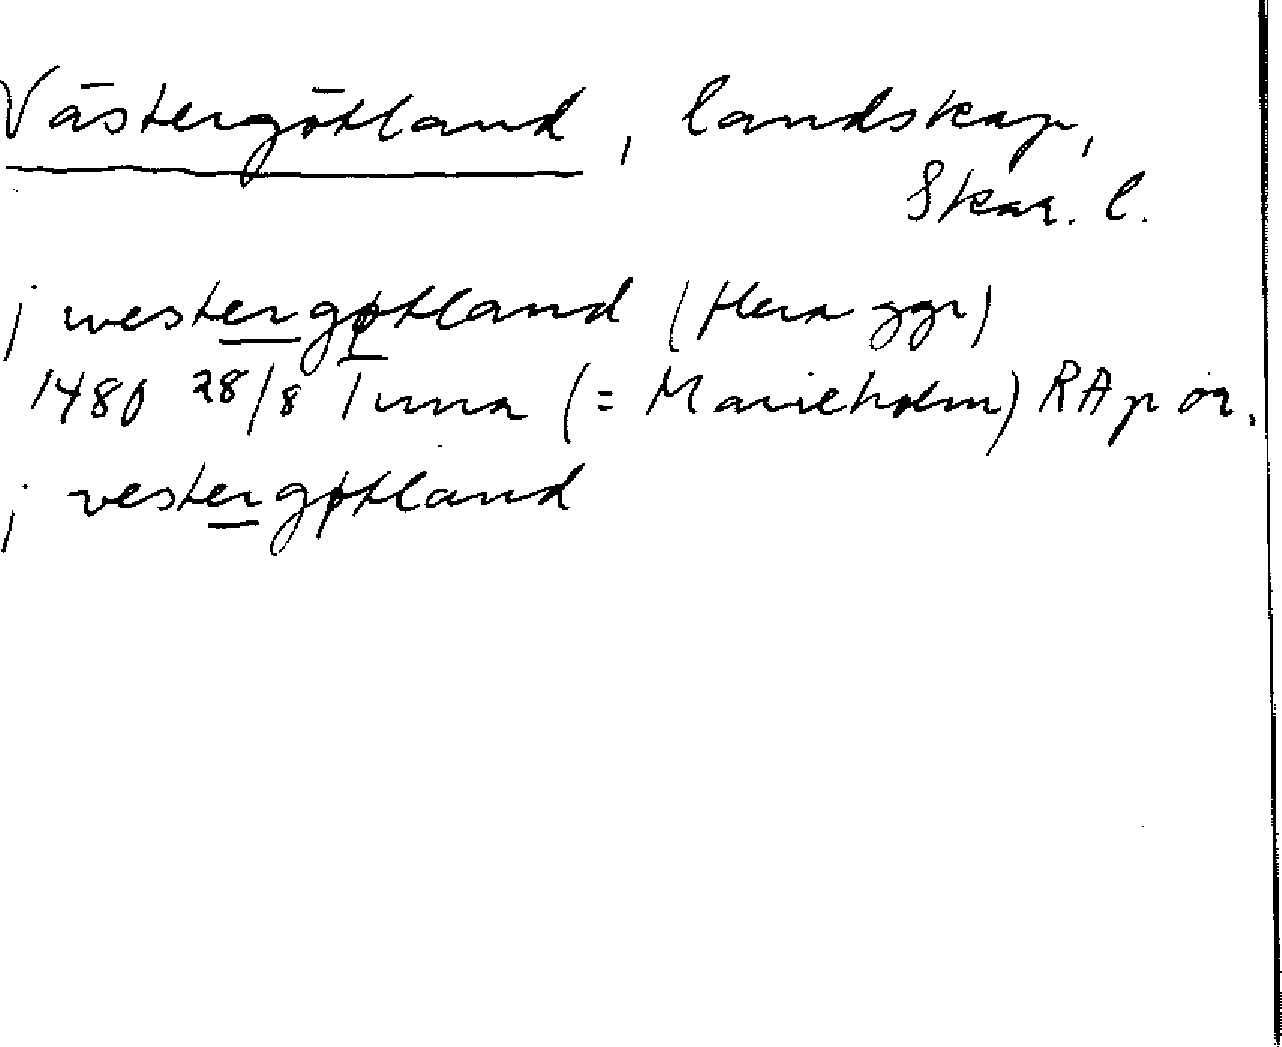 Västergötland, landskap,
Skar. l.
j westergøtland (flera ggr)
1480 28/8 Tuna (= Marieholm) RAp or.
j vestergøtland